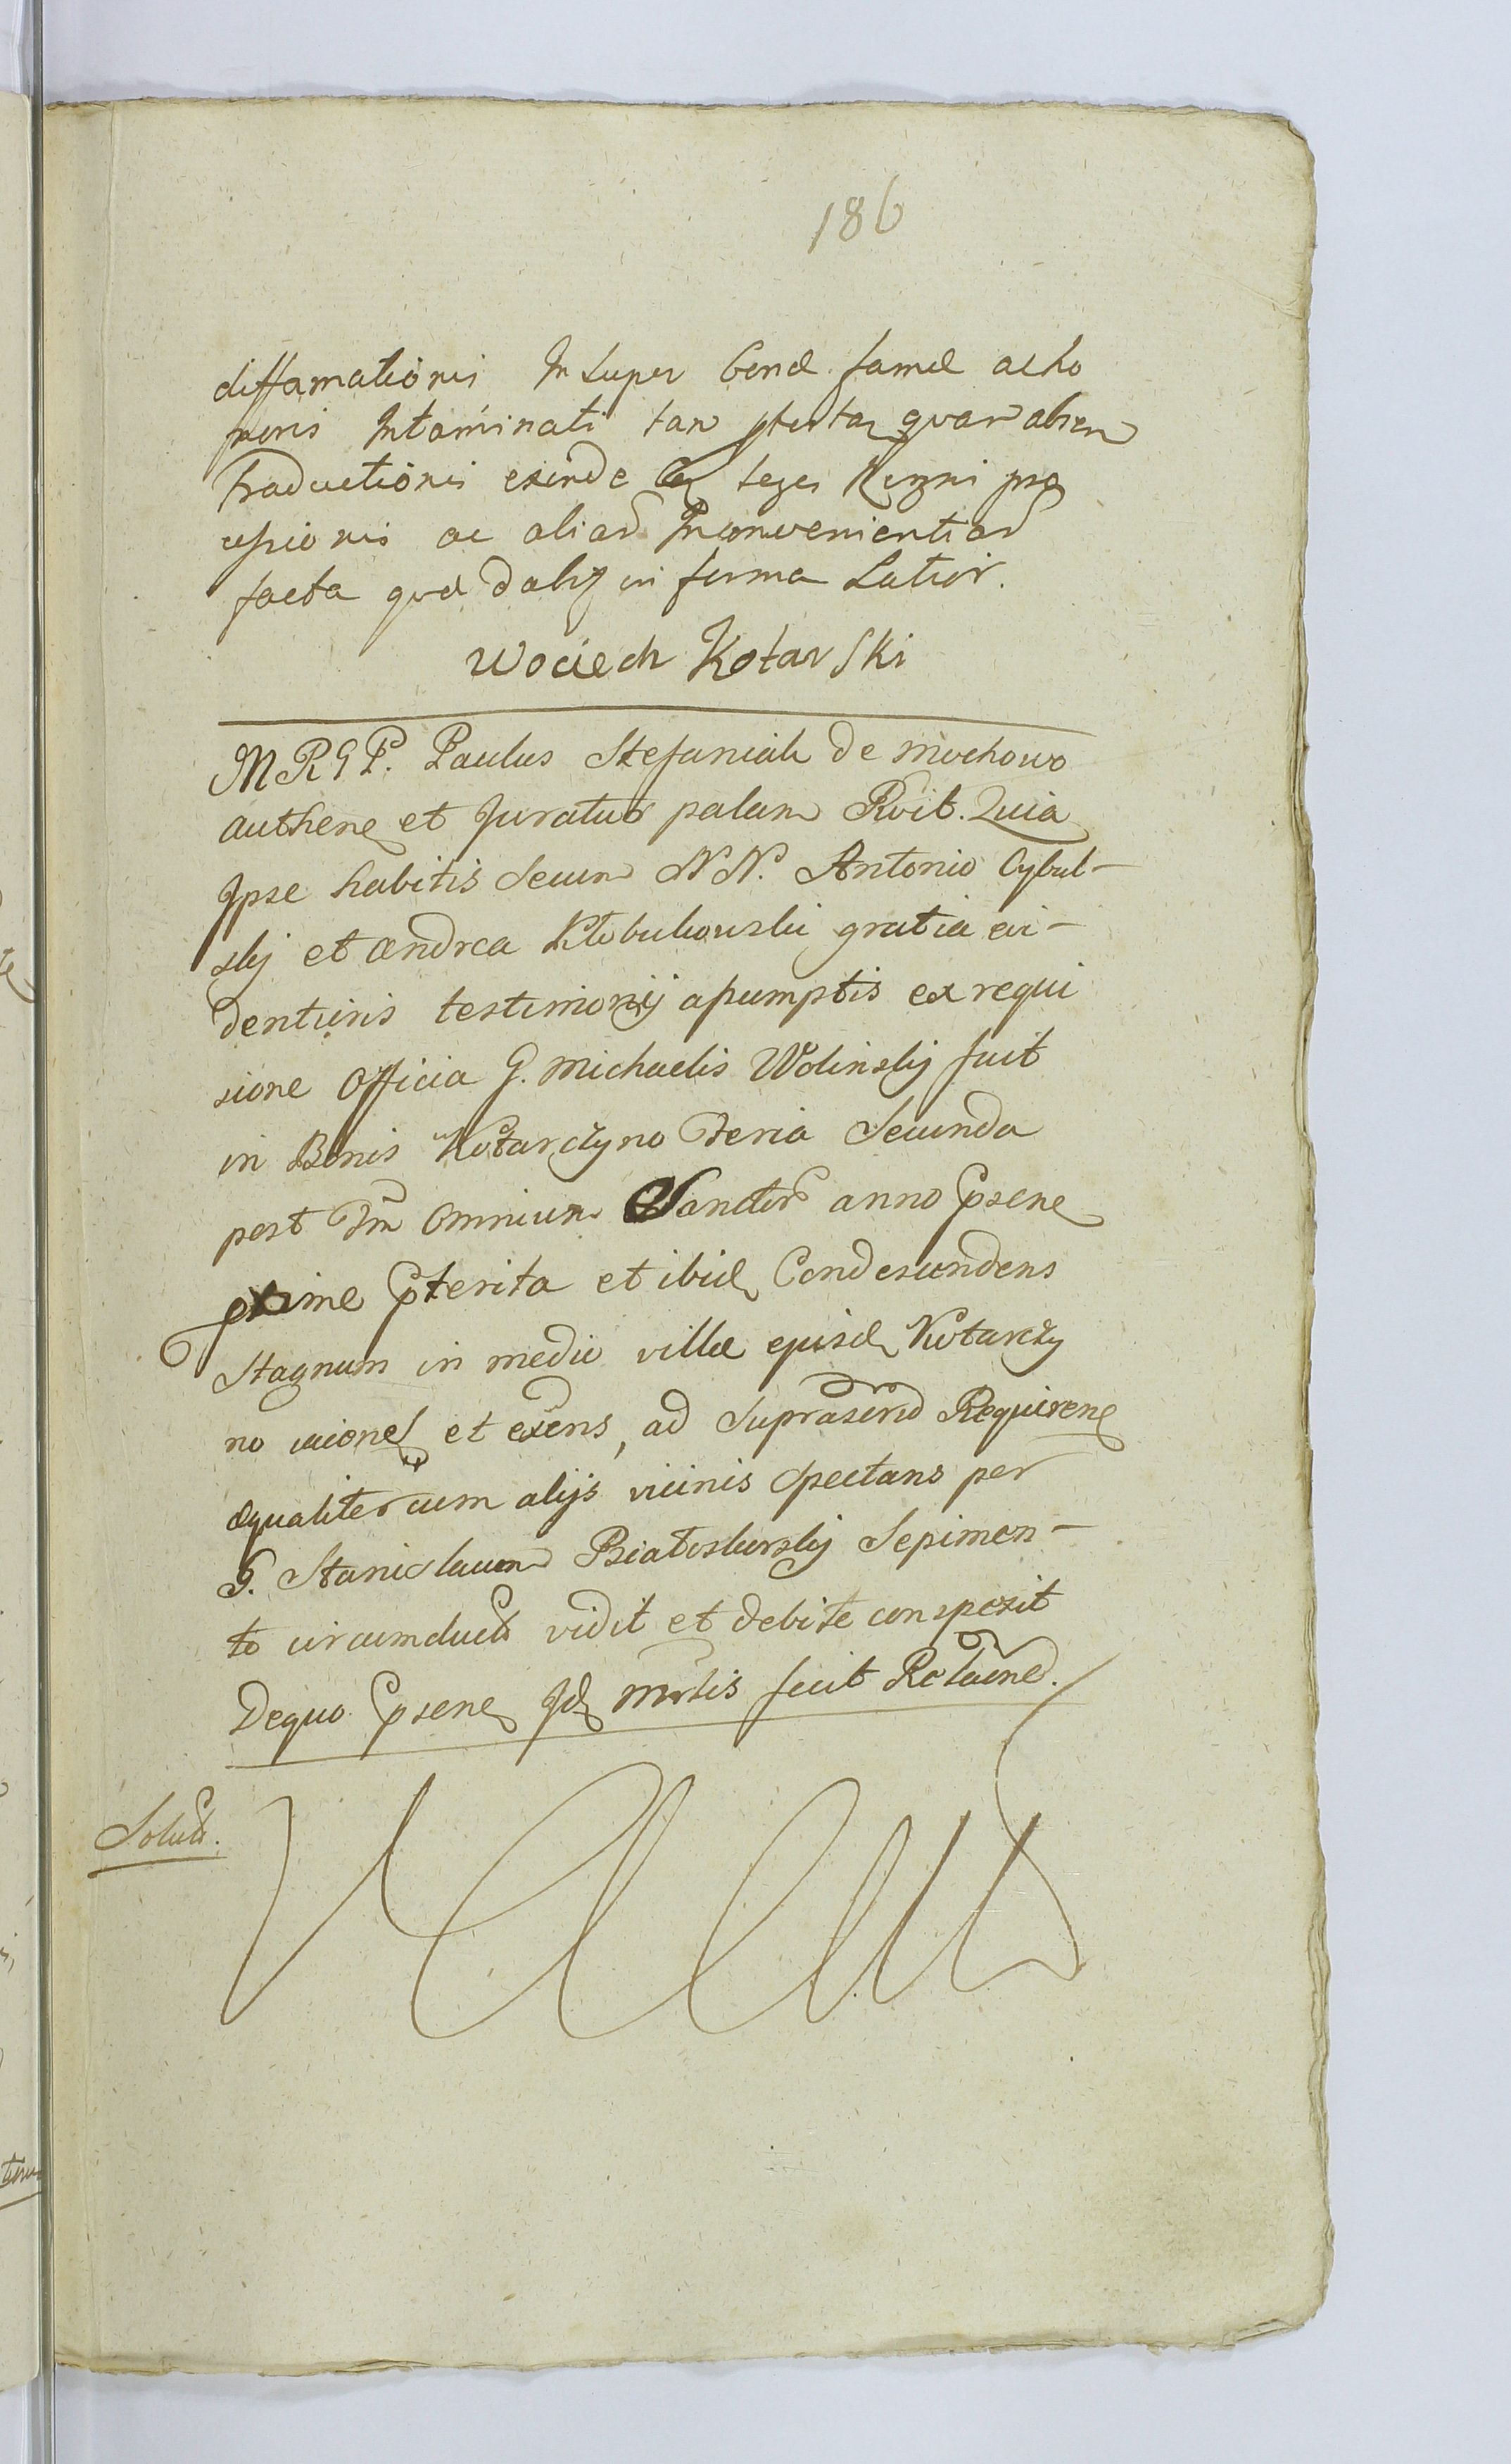 186
diffamationis Insuper bonæ famæ ac ho
noris Intaminati tam quam absen
traductionis exinde leges Regni
cessionis ac aliar Inconvenientiar
facta quæ in forma Latior.
Wociech Kotarski
M R G P. Paulus Stefaniak de Mochowo
authene et Juratus palam Rvit. Quia
Ipse habitis secum N N. Antonio Cybul-
skij et Andrea Klobukowski gratia evi-
dentioris testimonij assumptis ex requi
sione Officia G. Michaelis Wolinskij fuit
in Bonis Kotarczyno Feria Secunda
post Omnium Sanctor anno psene
pxime pterita et ibid Condescendens
Stagnum in medio villæ ejusd Kotarczy
no et exens, ad suprascrid Requirene
æqualiter cum alijs vicinis spectans per
G. Stanislaum Bialoskorskij Sepimen-
to circumduct vidit et debite conspexit
De quo psene Id fecit Relaone.
Solut.